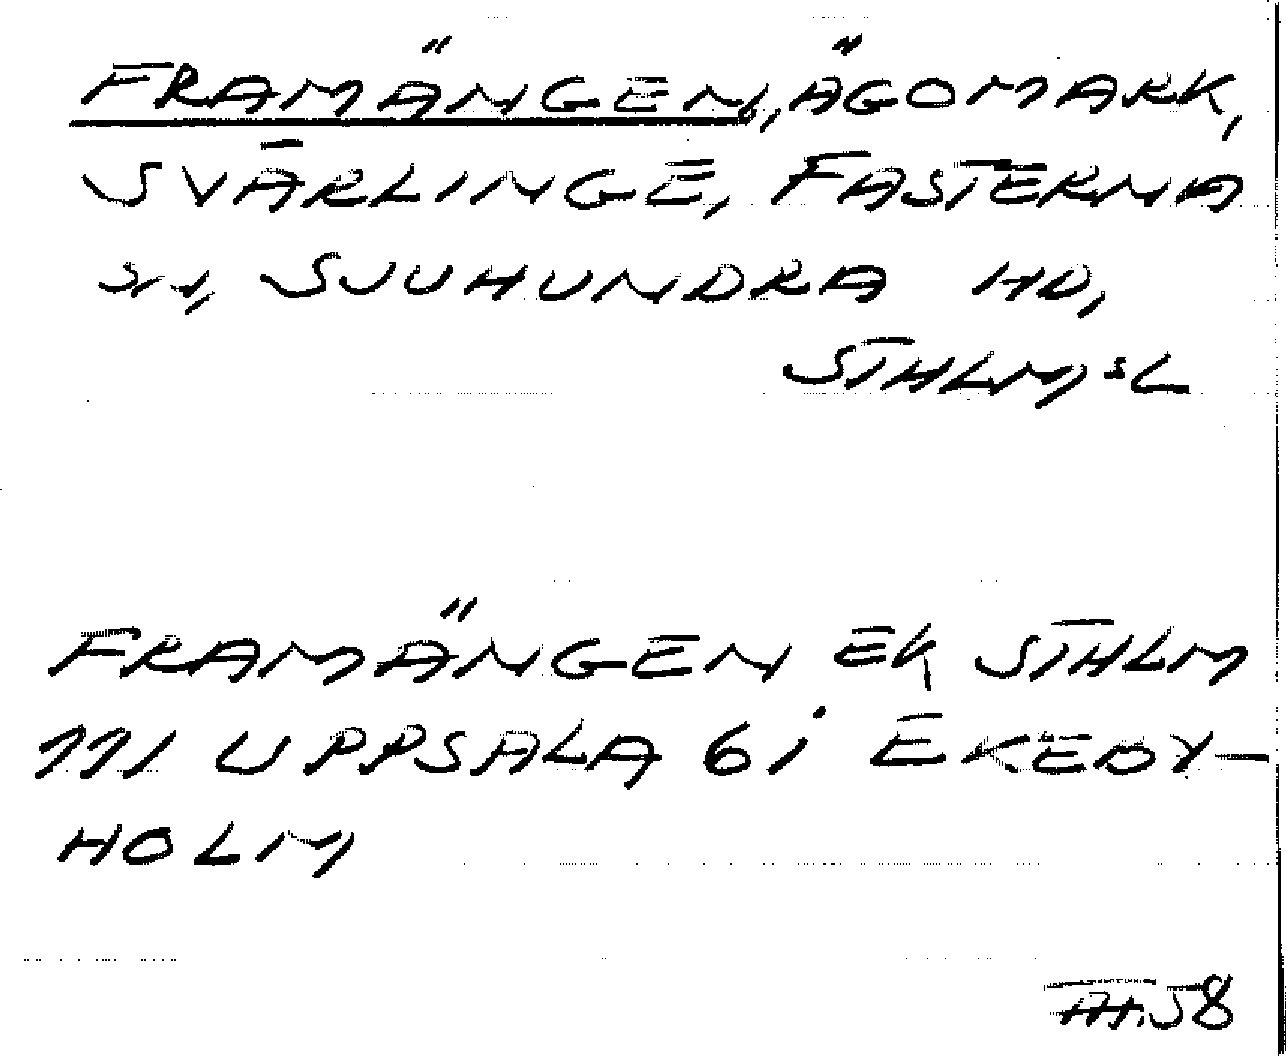 FRAMÄNGEN, ÄGOMARK,
SVÄRLINGE, FASTERNA
SN, SJUHUNDRA HD,
STHLM:SL
FRAMÄNGEN EK STHLM
111 UPPSALA 6i EKEBY-
HOLM
58